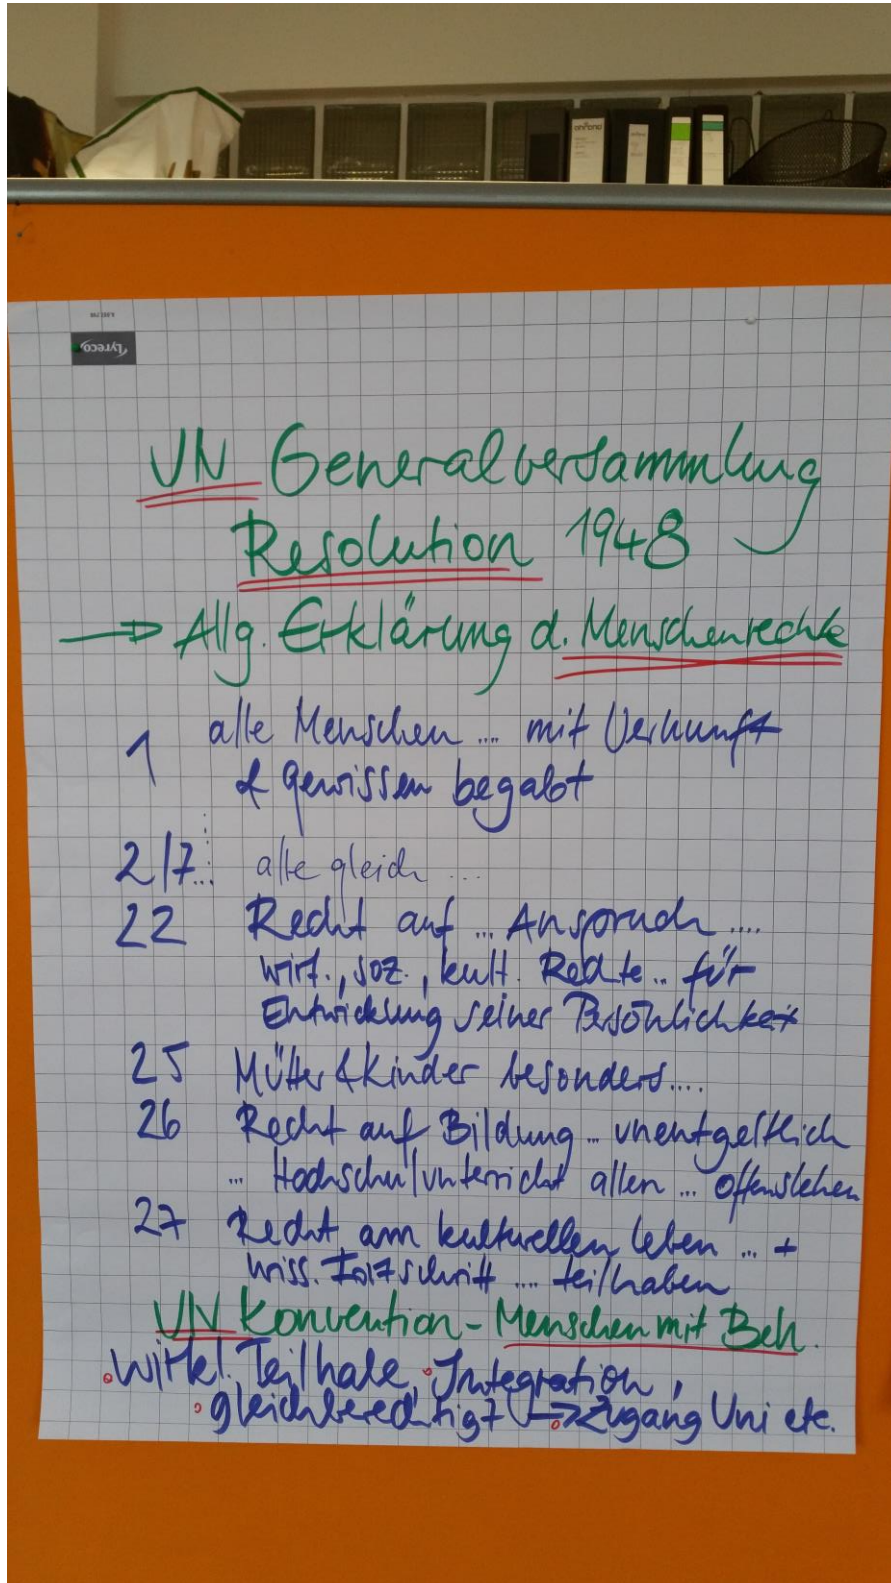 Lyreco
UN Generalversammlung
Resolution 1948
→ Allg. Erklärung d. Menschenrechte
1 alle Menschen ... mit Vernunft
& Gewissen begabt
2/7... alle gleich ...
22 Recht auf ... Anspruch ....
wirt., soz., kult. Rechte .. für
Entwicklung seiner Persönlichkeit
25 Mütter & Kinder besonders....
26 Recht auf Bildung .. unentgeltlich
... Hochschulunterricht allen ... offenstehen
27 Recht am kulturellen Leben ... +
wiss. Fortschritt .... teilhaben
UN Konvention - Menschen mit Beh.
• wirkl. Teilhabe, • Integration,
• gleichberechtigt → Zugang Uni etc.